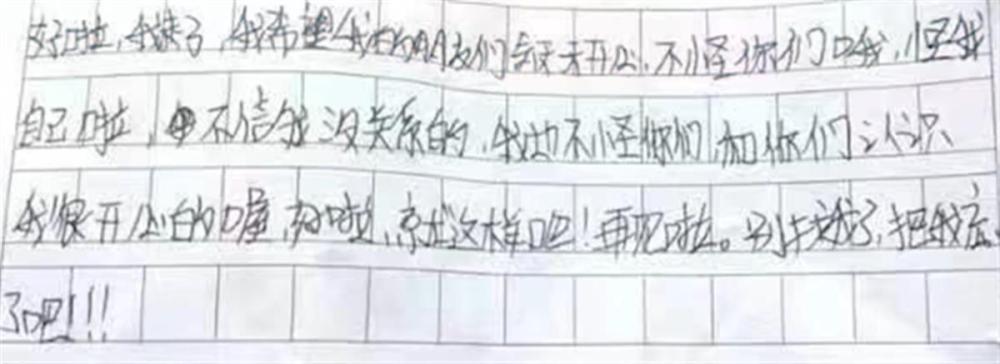 好啦,我走了,我希望我的朋友们每天开心,不怪你们口我,怪我
自己啦,不信我没关系的,我也不怪你们,和你们认识
我很开心的喔,好啦,就这样吧!再见啦。别找我了,把我忘
了吧!!!